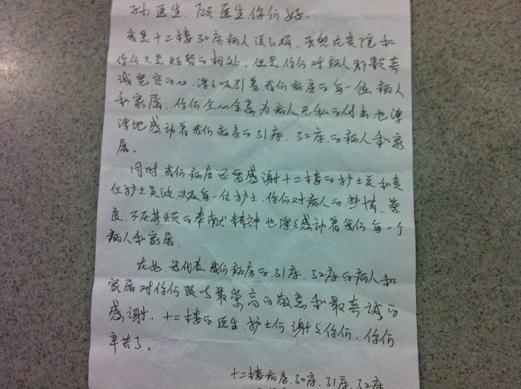 孙医生、顾医生你们好。
我是十二楼30床病人,虽然在贵院和
你们只是短暂的相处,但是你们对病人那最真
诚宽容的心,深深吸引着我们病房的每一位病人
和家属,你们全心全意为病人无私的付出也深
深地感动着我们病房的31床、32床的病人和家
属。
同时我们病房还要感谢十二楼的护士长和责
任护士吴波以及每一位护士,你们对病人的热情、善
良、不厌其烦的奉献精神也深深感动着我们每一个
病人和家属。
在此,我代表我们病房的31床、32床的病人和
家属对你们致以最崇高的敬意和最真诚的
感谢,十二楼的医生护士们谢谢你们,你们
辛苦了。
十二楼病房、30床、31床、32床